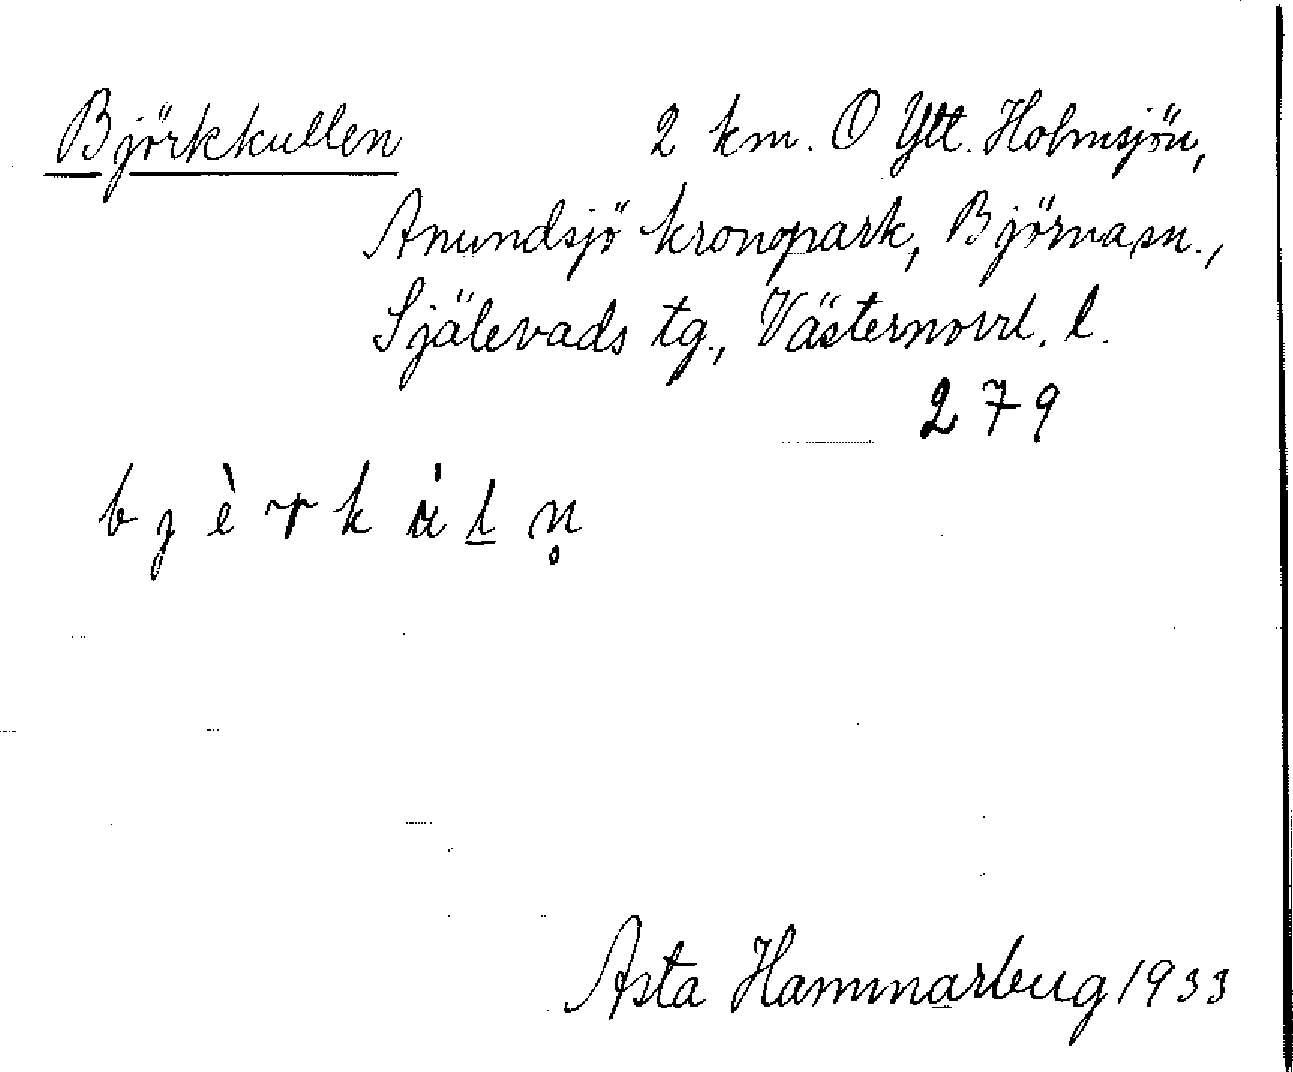 Björkkullen 2 km. O Ytt. Holmsjön,
Anundsjö kronopark, Björnasn.,
Själevads tg., Västernorrl. l.
279
bjèrkʉ́l̲n̥
Asta Hammarberg 1933